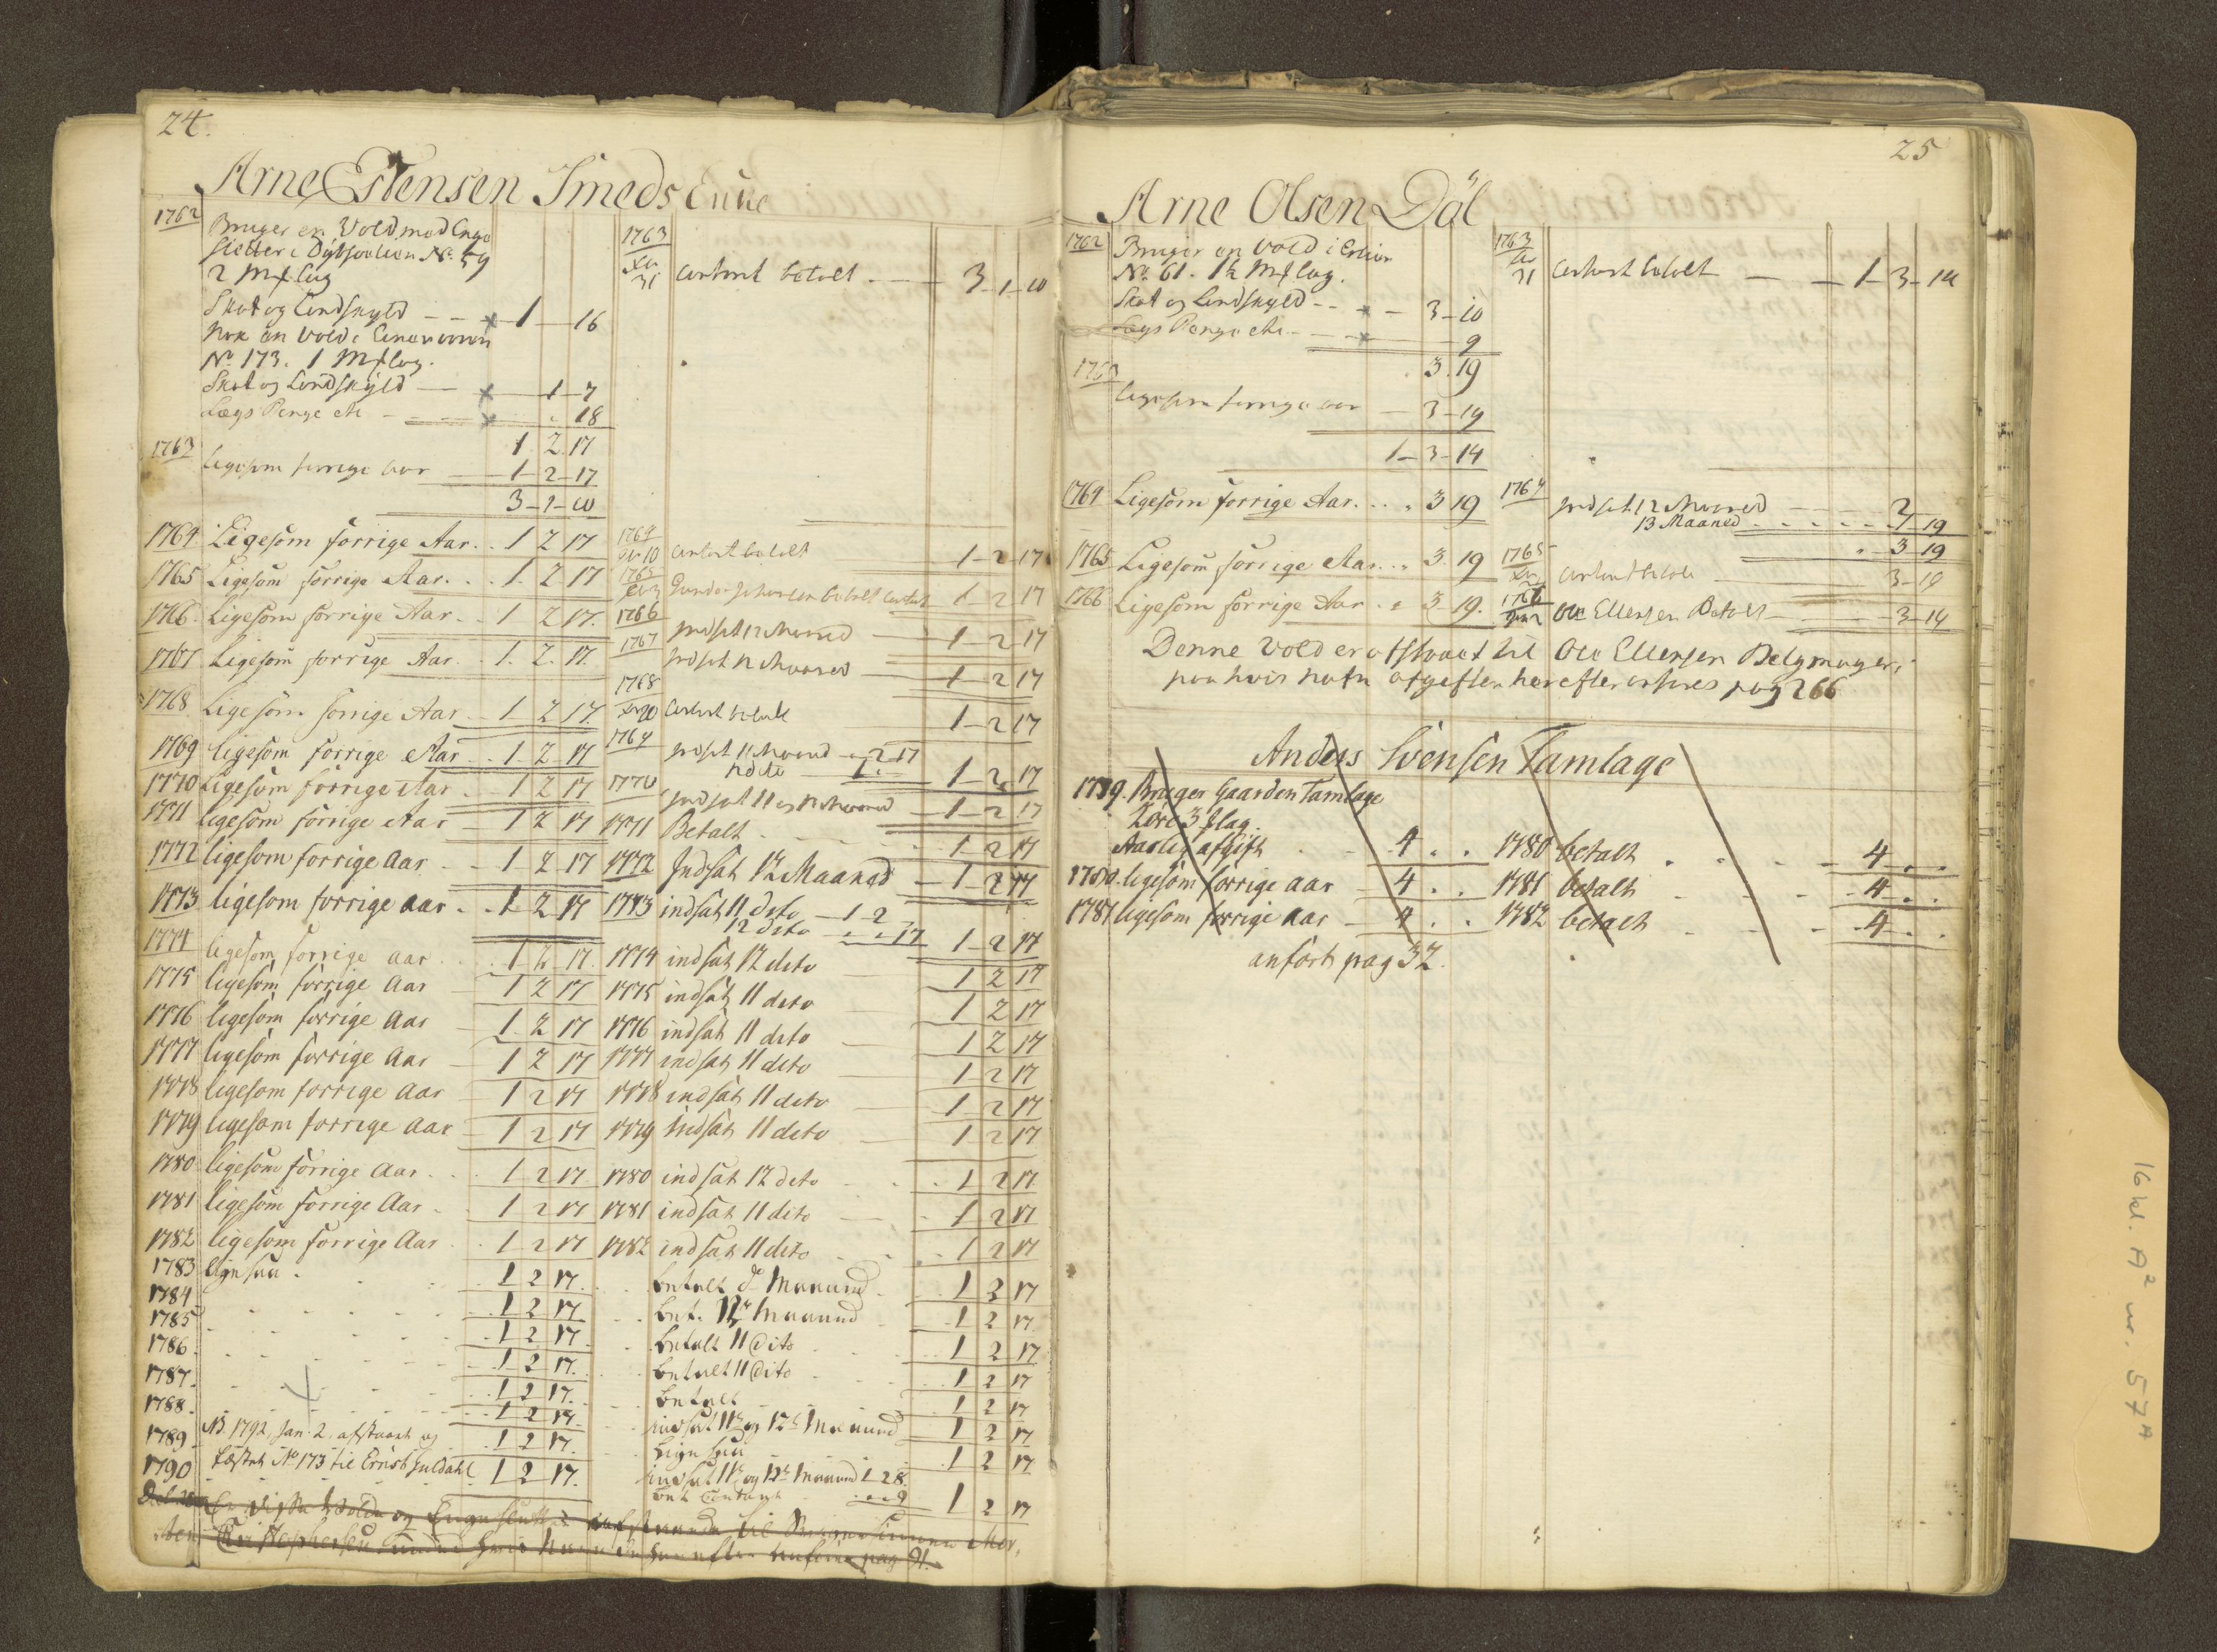 24.
Arne Estensen Smeds Enke
1762 Bruger en Vold med Enge
sletter i Dybsoelien No. 59
2 Mf lag
Skat og Landskyld - - x 1 - 16
Nok en Vold i
No 173. 1 Mf lag.
Skat og Landskyld - x - 1 - 7
Lægs Penge etc - - x - . 18
1 2 17
1763 ligesom forrige aar - 1 - 2 - 17
3 - 1 - 10
1764 Ligesom forrige Aar . . 1 2 17
1765 Ligesom forrige Aar . . 1 2 17
1766 Ligesom forrige Aar . . 1 2 17.
1767 Ligesom forrige Aar . . 1. 2. 17.
1768 Ligesom forrige Aar - 1 2 17.
1769 ligesom forrige Aar . . 1 - 2 17
1770 Ligesom forrige Aar - 1 2 17
1771 ligesom forrige Aar - 1 2 17
1772 ligesom forrige Aar - - 1 2 17
1773 ligesom forrige aar - . 1 2 17
1774 ligesom forrige aar . . 1 2 17.
1775 ligesom forrige Aar - 1 2 17
1776 ligesom forrige Aar - 1 2 17
1777 ligesom forrige Aar - 1 2 17
1778 ligesom forrige Aar - 1 2 17
1779 ligesom forrige Aar - 1 2 17
1780 ligesom forrige Aar . . . 1 2 17
1781 ligesom forrige Aar - . 1 2 17
1782 ligesom forrige Aar . . 1 2 17
1783 ligesaa . . . 1 2 17
1784 - - - 1 2 17
1785 - - - 1 2 17
1786 - - - 1 2 17.
1787 - - - 1 2 17.
1788 - - - 1 2 17.
1789 NB. 1792, Jan. 2, afstaaet og - 1 2 17.
1790 fæstet No 173 til Ernst Guldahl 1 2 17.
1763 31 Contant betalt - 3 - 1 - 10
1764 10 Contant betalt 1 - 2 17
1765 betalt Contant 1 2 17
1766 Indsat 12 Maaned - 1 - 2 17
1767 Indsat 12 Maaned - 1 - 2 17
1768 20 Contant betalt 1 - 2 17
1769 Indsat 11 Maaned - . 2 17
12 dito - 1 . - 1 - 2 - 17
1770 Indsat 11 og 12 Maaned - 1 - 2 17
1771 Betalt - - - 1 2 17
1772 Indsat 12 Maaned - 1 - 2 17
1773 indsat 11 dito - 1 2
12 dito - . . 17 1 - 2 17
1774 indsat 12 dito - 1 2 17
1775 indsat 11 dito 1 2 17
1776 indsat 11 dito - 1 2 17
1777 indsat 11 dito - 1 2 17
1778 indsat 11 dito - 1 2 17
1779 Indsat 11 dito - 1 2 17
1780 indsat 12 dito - . . 1 2 17
1781 indsat 11 dito - . 1 2 17
1782 indsat 11 dito . . . 1 2 17
betalt Maaned - 1 2 17
bet. 12 Maaned - 1 2 17
betalt 11 Dito . . 1 2 17
betalt 11 Dito - - 1 2 17
betalt - - 1 2 17
indsat 11te og 12te Maaned - 1 2 17
ligesaa - - 1 2 17
indsat 11te og 12te Maaned 1 2 8.
bet Contant . . . 9 1 2 17
25
Arne Olsen Dál
1762 Bruger en Vold i
No. 61. 1½ Mf lag.
Skat og Landskyld - - x - 3 - 10
Lægs Penge etc. - - x - 9
3. 19
1763 ligesom forrige aar - 3 - 19
1 - 3 - 14
1764 Ligesom forrige Aar. . . . 3 19
1765 Ligesom forrige Aar. . . 3. 19
1766 Ligesom forrige Aar . . 3 19.
1763 31 Contant betalt - 1 - 3 - 14
1764 Indsat 12 Maaned - 2
13 Maaned . . . . 1 19
. 3 19
1765 Contant betalt 3 - 19
1766 Ole Ellensen Betalt - 3 - 19
Denne Vold er afstaaet til Ole Ellensen Belgmager,
paa hvis nafn afgiften herefter anføres pag 266
Anders Svensen Tamlage
1779. Bruger Gaarden Tamlage
3 lag.
Aarlig afgift - - 4 . . 1780 betalt . . - - 4 . .
1780. ligesom forrige aar - 4 . . 1781 betalt - - 4 . .
1781 ligesom forrige Aar - 4 . . 1782 betalt - - - 4 . .
anført pag 32.
16 kl. A2 nr. 57A